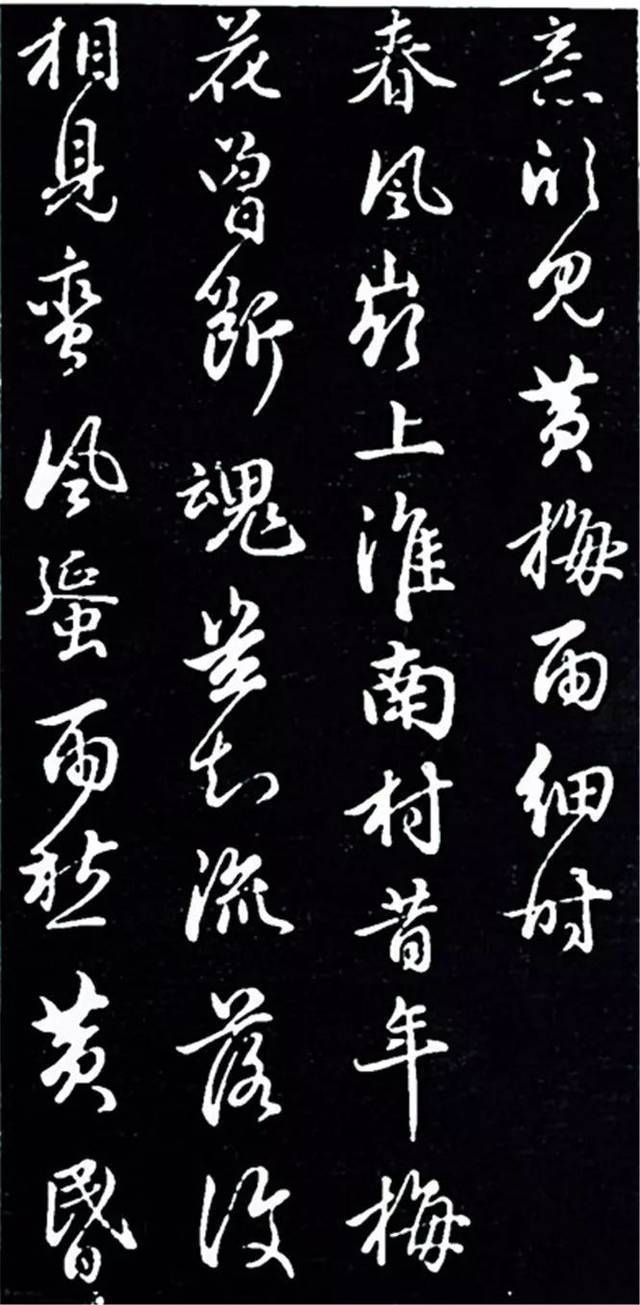 意怕見黄梅雨細時
春風嶺上淮南村昔年梅
花曾斷魂豈知流落復
相見蠻風蜑雨愁黄昏